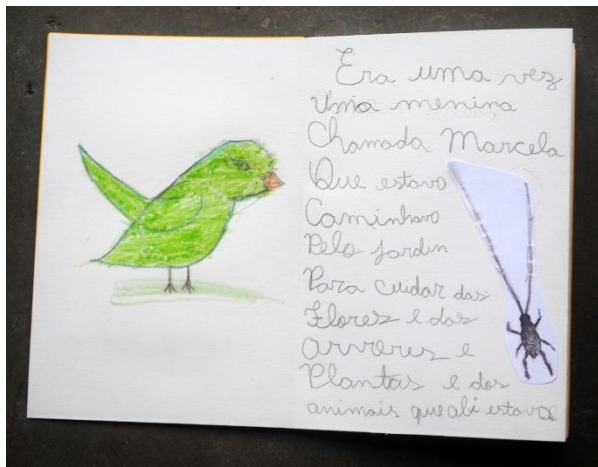 Era uma vez
Uma menina
Chamada Marcela
Que estavo
Caminhavo
Pelo jardin
Para cuidar das
Flores e das
arvores e
Plantas e dos
animais que abi estava